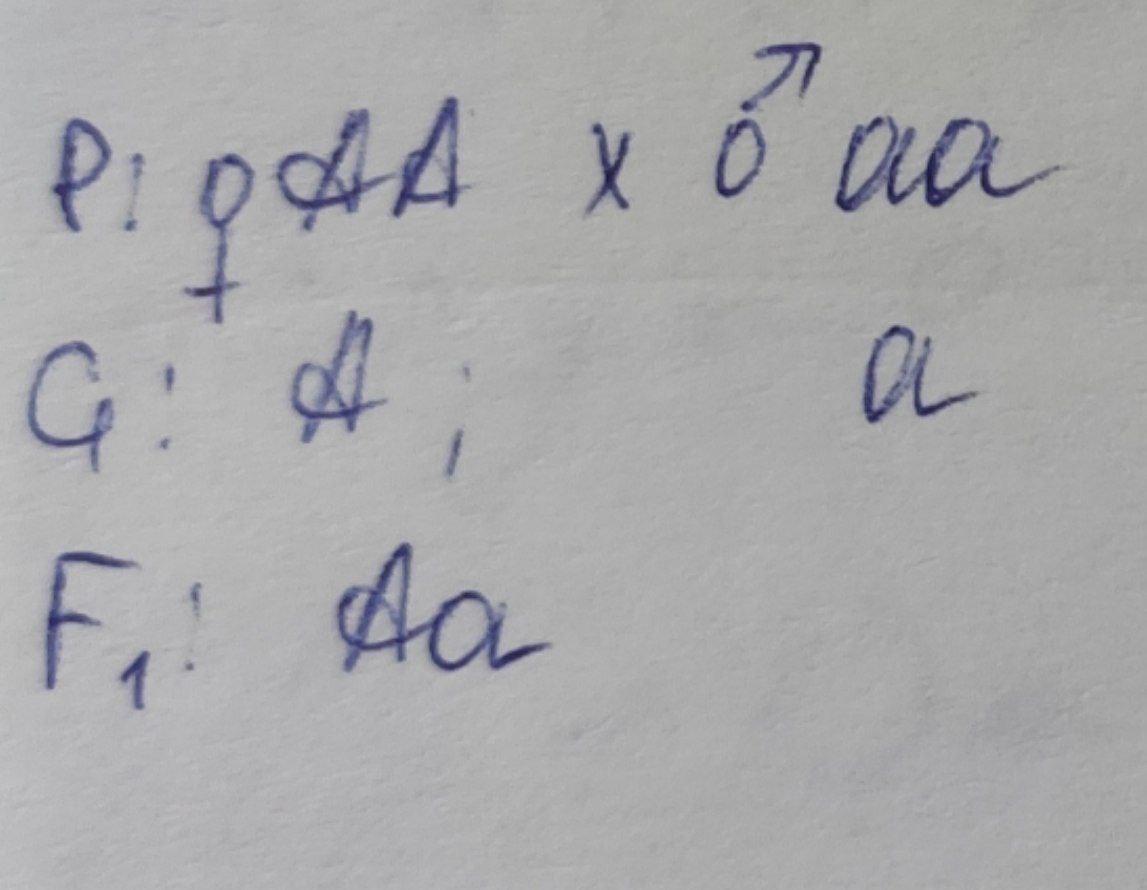 P: ♀ AA x ♂ aa
G: A ; a
F₁: Aa